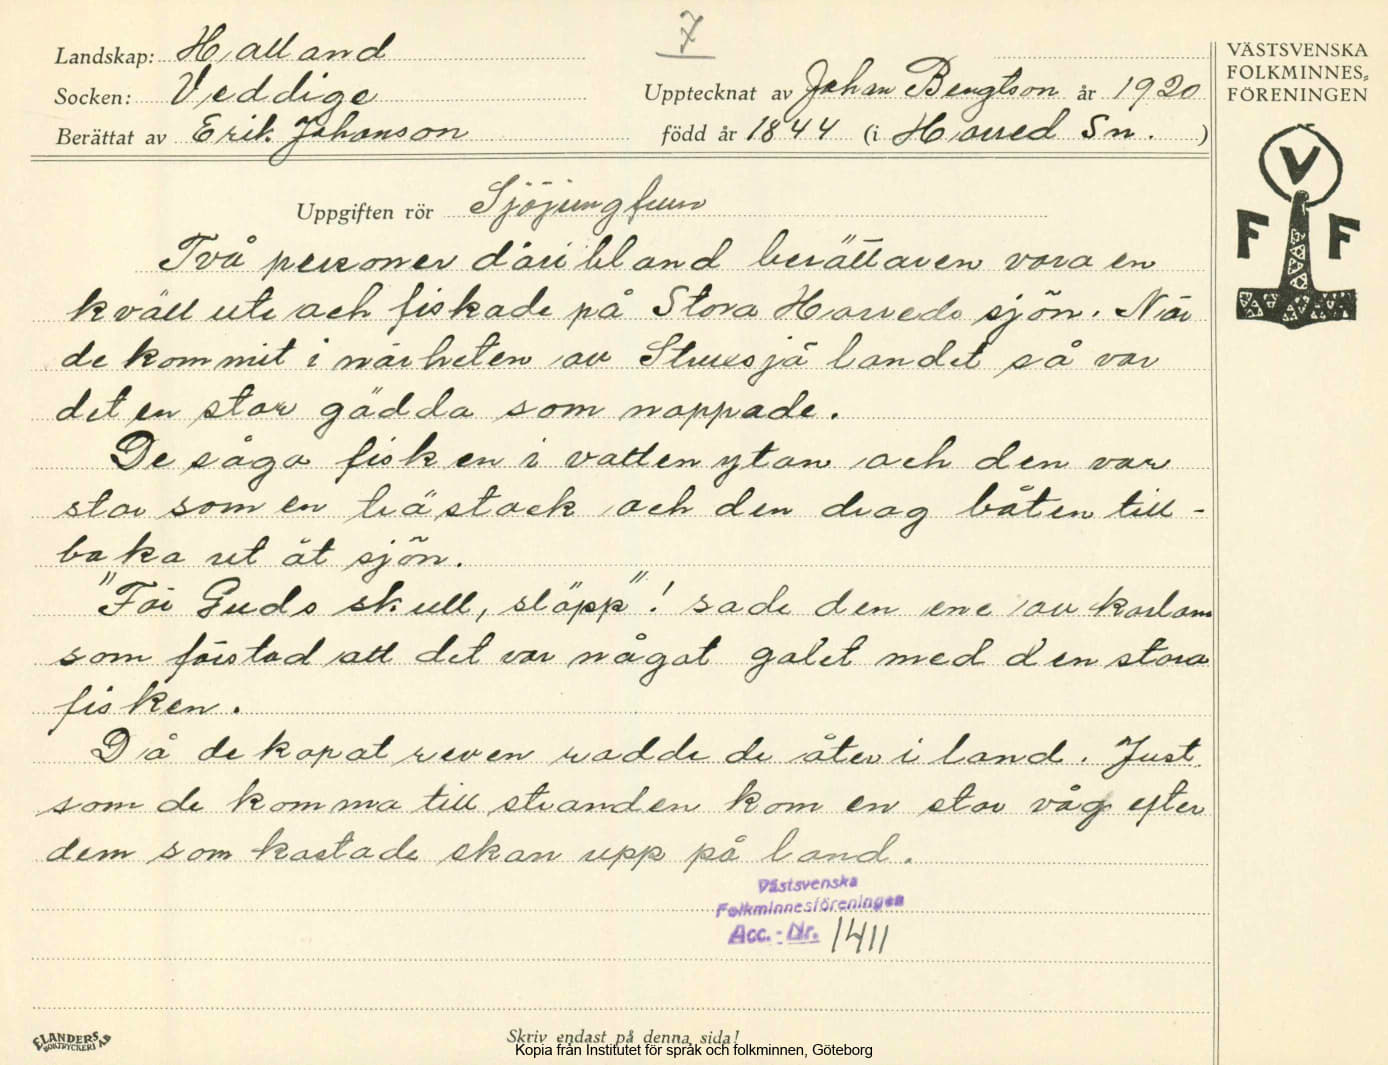 7
Landskap: Halland
VÄSTSVENSKA
FOLKMINNES-
FÖRENINGEN
Socken: Veddige
Upptecknat av Johan Bengtson år 1920
Berättat av Erik Johanson
född år 1844 (i Horred Sn. )
V
F F
Uppgiften rör Sjöjungfrun
Två personer däribland berättaren vora en
kväll ute och fiskade på Stora Horreds sjön. När
de kommit i närheten av landet så var
det en stor gädda som nappade.
De såga fisken i vattenytan och den var
stor som en trästock och den drog båten till-
baka ut åt sjön.
"För Guds skull, släpp"! sade den ene av karlarna
som förstod att det var något galet med den stora
fisken.
Då de kapat reven rodde de åter i land. Just
som de komma till stranden kom en stor våg efter
dem som kastade ekan upp på land.
Västsvenska
Folkminnesföreningen
Acc. - Nr. 1411
ELANDERS
BOKTRYCKERI AB
Skriv endast på denna sida!
Kopia från Institutet för språk och folkminnen, Göteborg